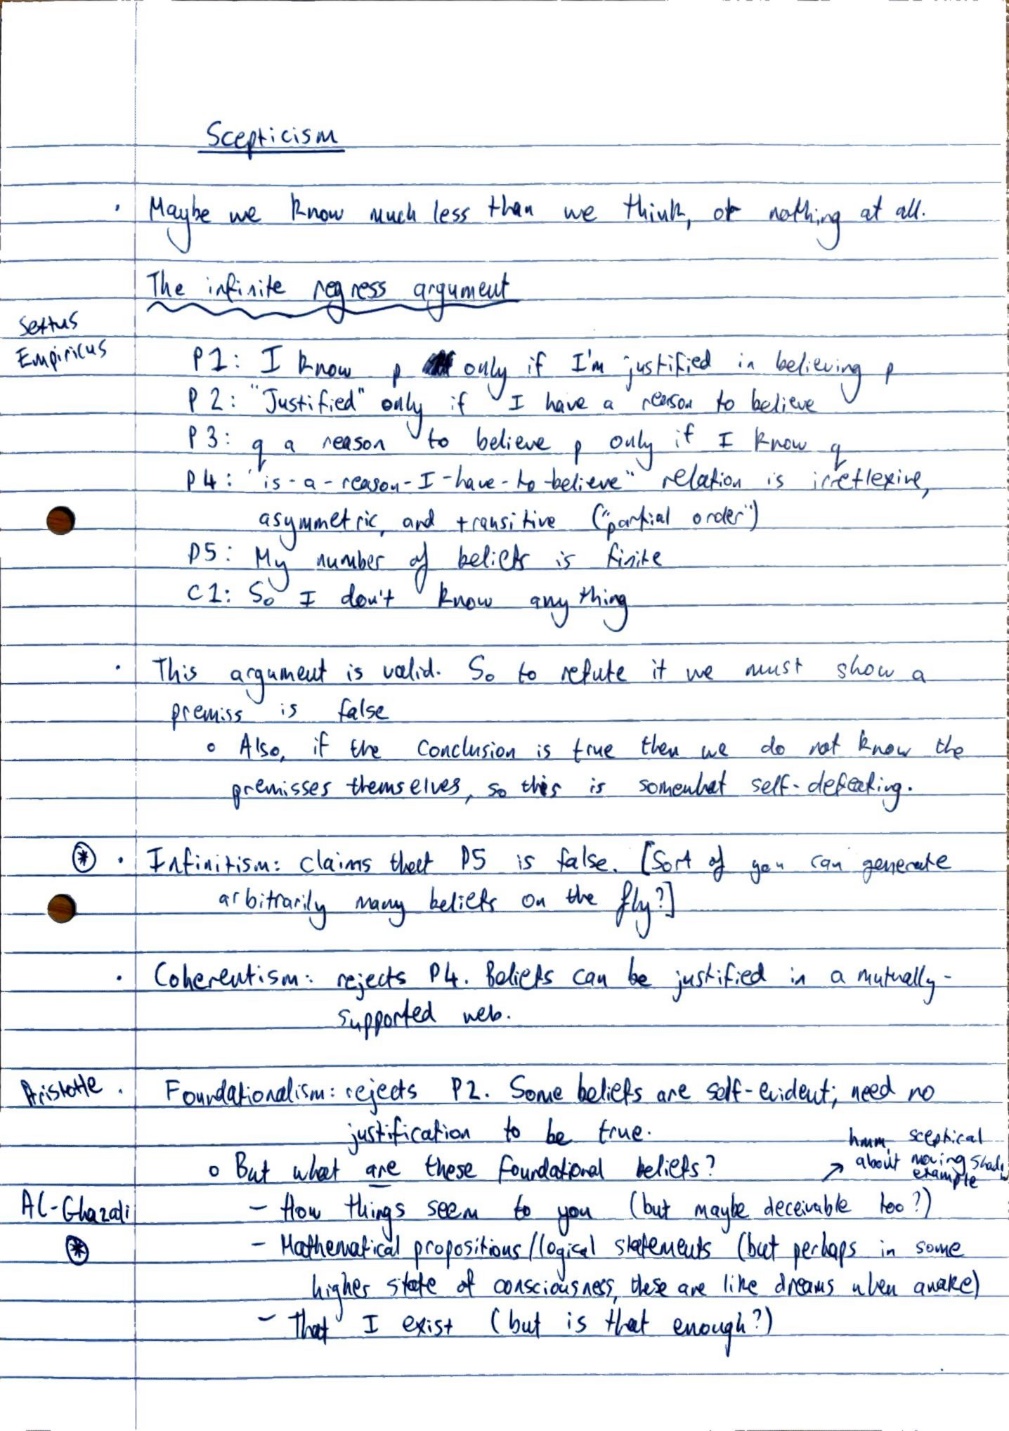 Scepticism
· Maybe we know much less than we think, or nothing at all.
The infinite regress argument
Sextus
Empiricus
P1: I know p only if I'm justified in believing p
P2: "Justified" only if I have a reason to believe
P3: q a reason to believe p only if I know q
P4: "is-a-reason-I-have-to-believe" relation is irreflexive,
asymmetric, and transitive ("partial order")
P5: My number of beliefs is finite
C1: So I don't know anything
· This argument is valid. So to refute it we must show a
premiss is false
o Also, if the conclusion is true then we do not know the
premisses themselves, so this is somewhat self-defeating.
* · Infinitism: claims that P5 is false. [Sort of you can generate
arbitrarily many beliefs on the fly?]
· Coherentism: rejects P4. Beliefs can be justified in a mutually-
supported web.
Aristotle · Foundationalism: rejects P2. Some beliefs are self-evident; need no
justification to be true.
o But what are these foundational beliefs?
hmm, sceptical
↗ about moving
example
Al-Ghazali
*
– How things seem to you (but maybe deceivable too?)
– Mathematical propositions/logical statements (but perhaps in some
higher state of consciousness, these are like dreams when awake)
– That I exist (but is that enough?)